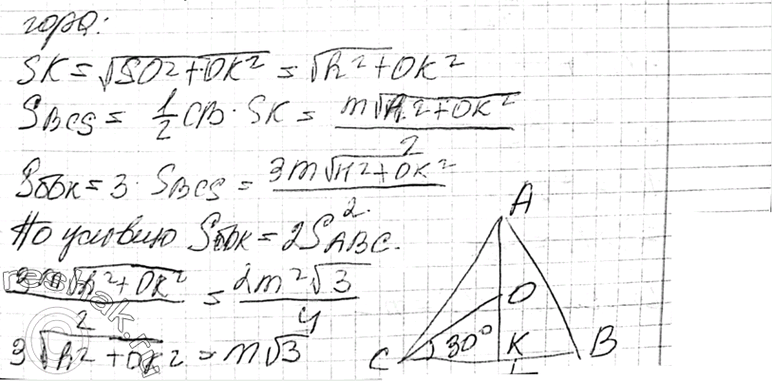 гора:
SK = √SO2 + OK2 = √h2 + OK2
SBCS = 1/2 CB · SK = m√h2 + OK2 / 2
Sбок = 3 · SBCS = 3m√h2 + OK2 / 2.
По условию Sбок = 2SABC.
3m√h2 + OK2 / 2 = 2m2√3 / 4
3√h2 + OK2 = m√3
A
O
C 30° K B
reshak.ru